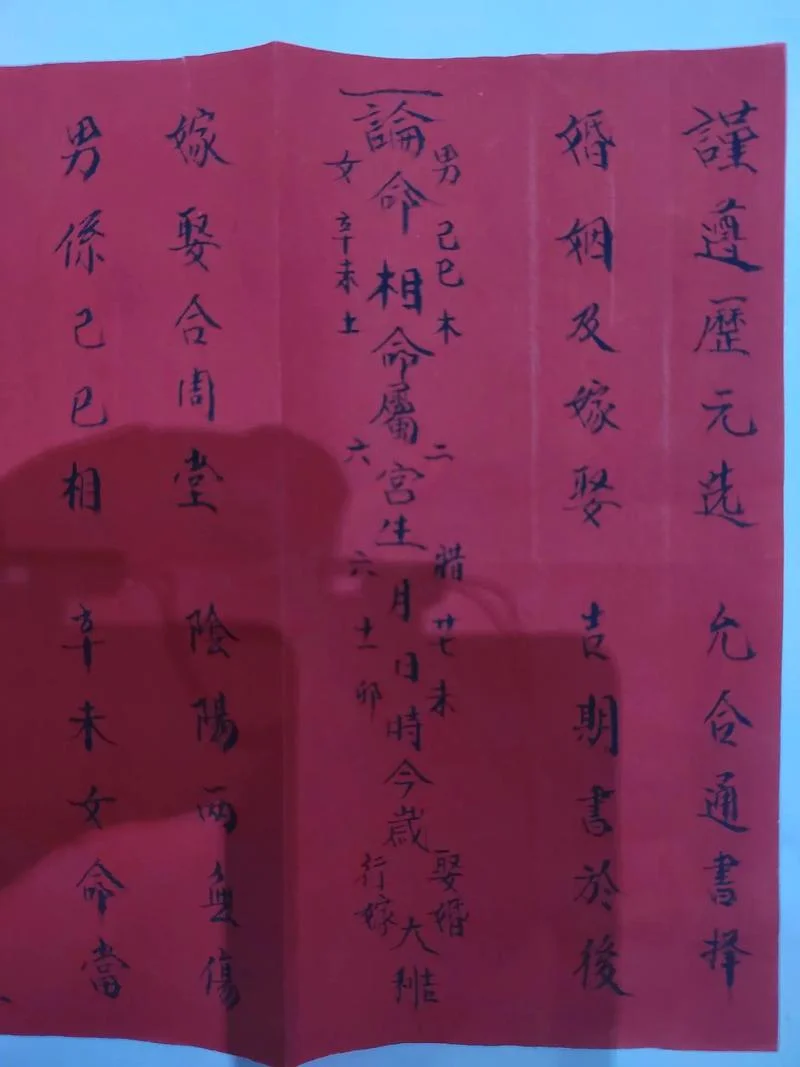 謹遵歷元选 允合通書择
婚姻及嫁娶 吉期書於後
男己巳木 二 腊廿七未 娶婚
一論命相命屬宮生月日時今歲大利
女辛未土 六 六十一卯 行嫁
嫁娶合周堂 陰陽两無傷
男係己巳相 辛未女命當